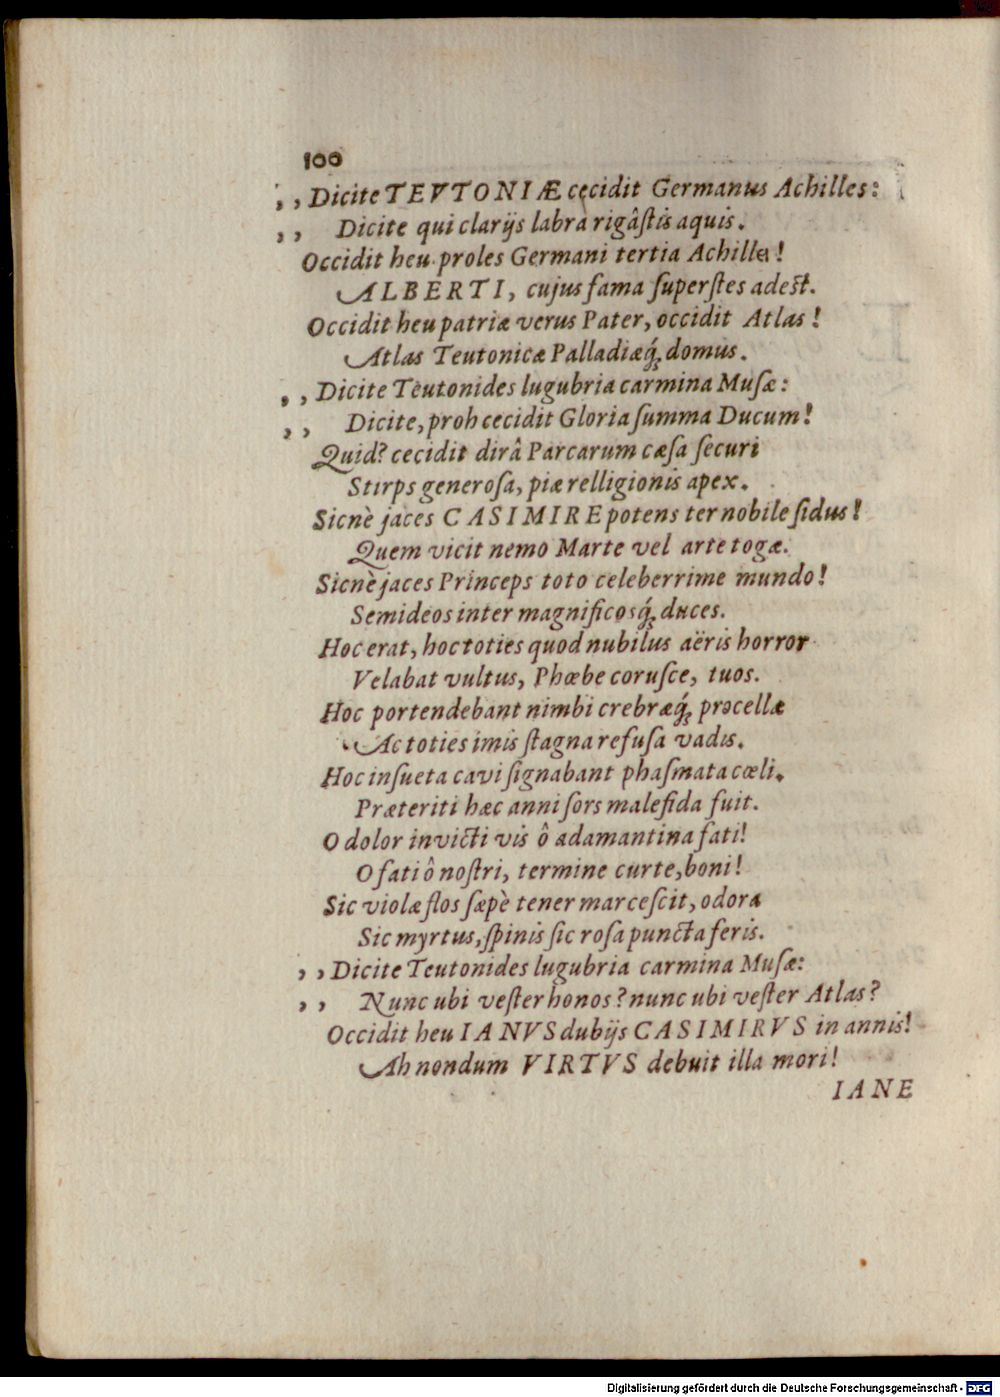 100
,, Dicite TEVTONIÆ cecidit Germanus Achilles:
,, Dicite qui clarijs labra rigâſtis aquis.
Occidit heu proles Germani tertia Achillei!
ALBERTI, cujus fama ſuperſtes adeſt.
Occidit heu patriæ verus Pater, occidit Atlas!
Atlas Teutonicæ Palladiæq́; domus.
,, Dicite Teutonides lugubria carmina Muſæ:
,, Dicite, proh cecidit Gloria ſumma Ducum!
Quid? cecidit dirâ Parcarum cæſa ſecuri
Stirps generoſa, piæ relligionis apex.
Sicnè jaces CASIMIRE potens ter nobile ſidus!
Quem vicit nemo Marte vel arte togæ.
Sicnè jaces Princeps toto celeberrime mundo!
Semideos inter magnificosq́; duces.
Hoc erat, hoc toties quod nubilus aëris horror
Velabat vultus, Phœbe coruſce, tuos.
Hoc portendebant nimbi crebræq́; procellæ
Ac toties imis ſtagna refuſa vadis.
Hoc inſueta cavi ſignabant phaſmata cœli,
Præteriti hæc anni ſors maleſida fuit.
O dolor invicti vis ô adamantina fati!
O fati ô noſtri, termine curte, boni!
Sic violæ flos ſæpè tener marceſcit, odora
Sic myrtus, ſpinis ſic roſa puncta feris.
,, Dicite Teutonides lugubria carmina Muſæ:
,, Nunc ubi veſter honos? nunc ubi veſter Atlas?
Occidit heu IANVS dubijs CASIMIRVS in annis!
Ah nondum VIRTVS debuit illa mori!
IANE
Digitalisierung gefördert durch die Deutsche Forschungsgemeinschaft - DFG